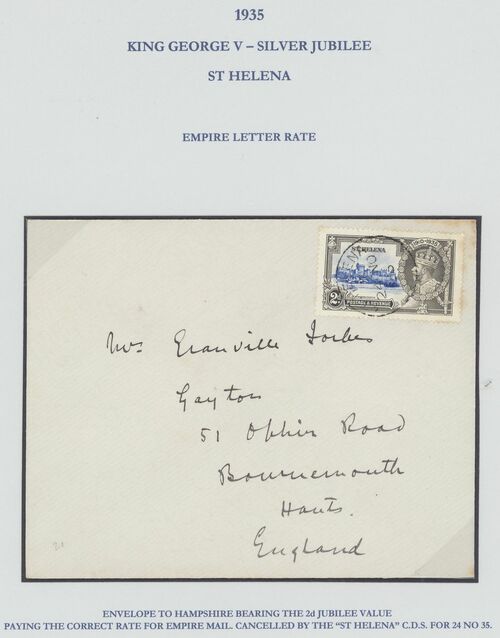 1935
KING GEORGE V – SILVER JUBILEE
ST HELENA
EMPIRE LETTER RATE
1910-1935
ST. HELENA
2d
POSTAGE & REVENUE
Mrs Granville Forbes
Gayton
51 Ophir Road
Bournemouth
Hants.
England
ENVELOPE TO HAMPSHIRE BEARING THE 2d JUBILEE VALUE
PAYING THE CORRECT RATE FOR EMPIRE MAIL. CANCELLED BY THE "ST HELENA" C.D.S. FOR 24 NO 35.